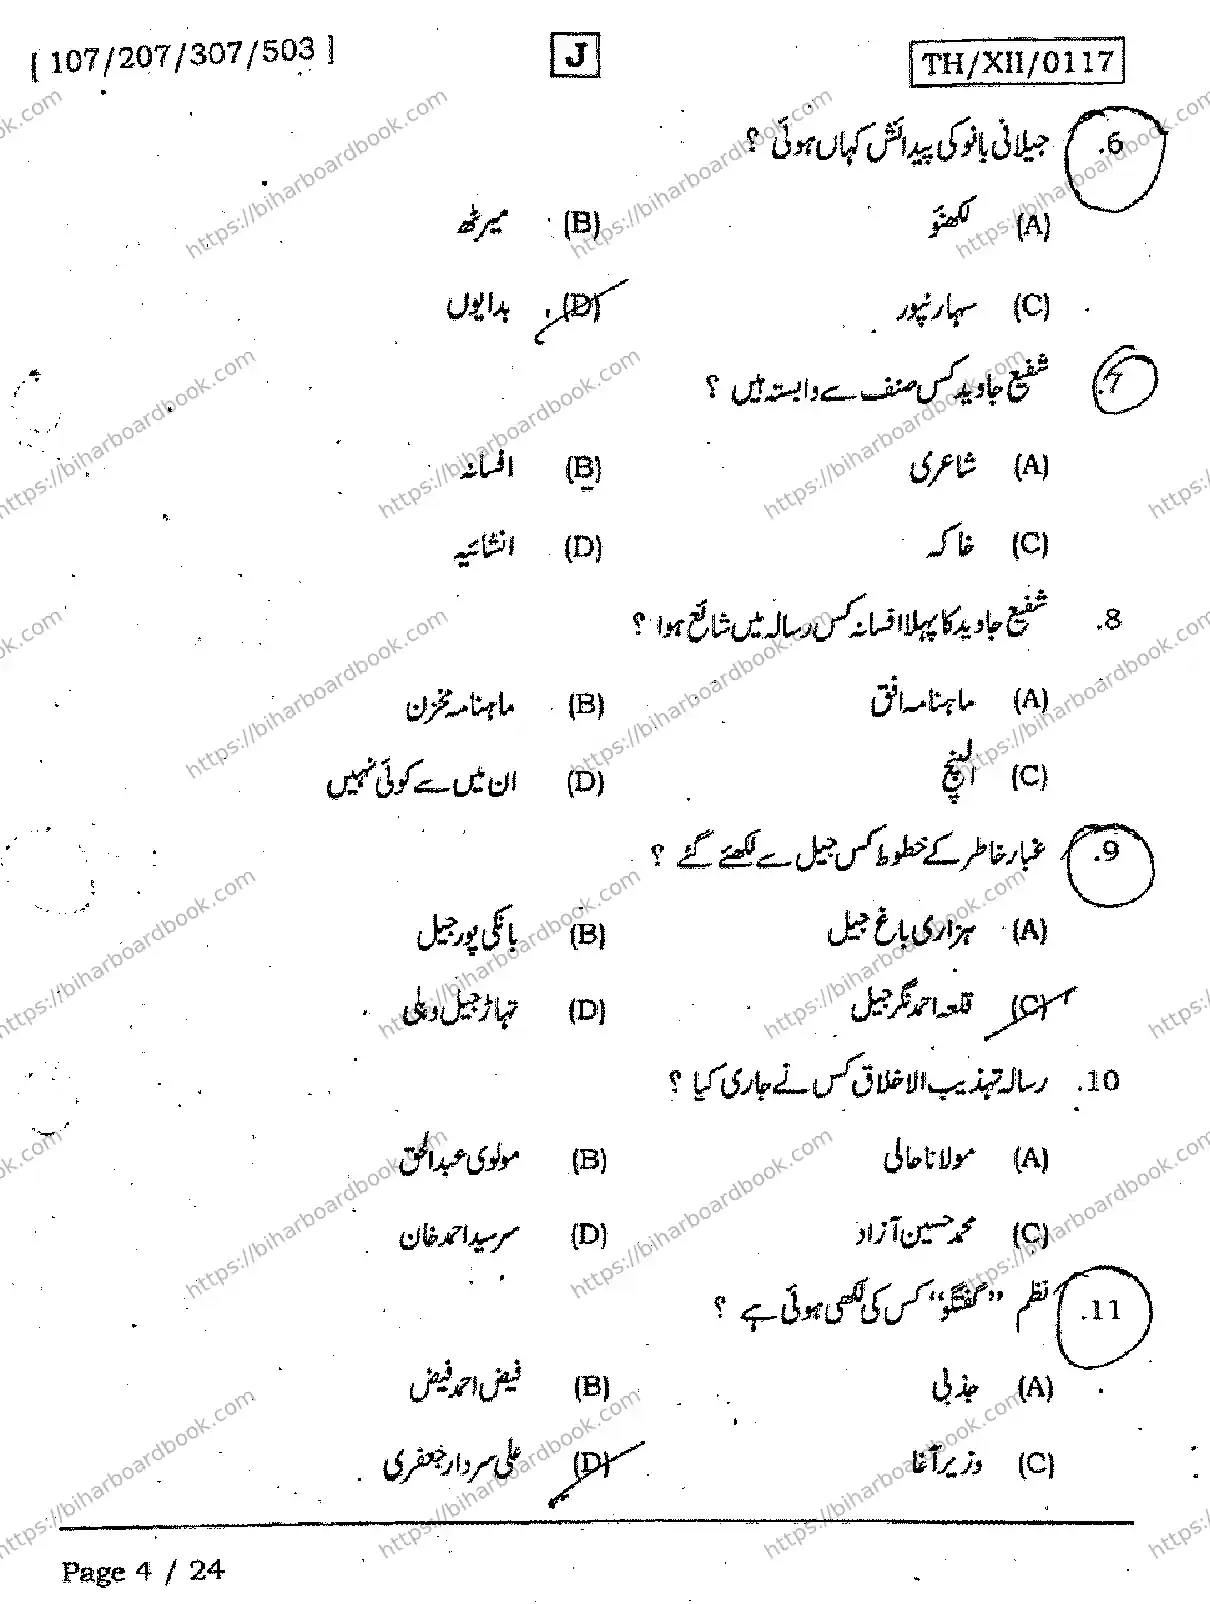 [ 107/207/307/503 ] J TH/XII/0117
6. جیلانی بانو کی پیدائش کہاں ہوئی ؟
(A) لکھنؤ (B) میرٹھ
(C) سہارنپور (D) بدایوں
7. شفیع جاوید کس صنف سے وابستہ ہیں ؟
(A) شاعری (B) افسانہ
(C) خاکہ (D) انشائیہ
8. شفیع جاوید کا پہلا افسانہ کس رسالہ میں شائع ہوا ؟
(A) ماہنامہ افق (B) ماہنامہ مخزن
(C) الپنچ (D) ان میں سے کوئی نہیں
9. غبار خاطر کے خطوط کس جیل سے لکھے گئے ؟
(A) ہزاری باغ جیل (B) بانکی پور جیل
(C) قلعہ احمد نگر جیل (D) تہاڑ جیل دہلی
10. رسالہ تہذیب الاخلاق کس نے جاری کیا ؟
(A) مولانا حالی (B) مولوی عبدالحق
(C) محمد حسین آزاد (D) سرسید احمد خان
11. نظم ”گفتگو“ کس کی لکھی ہوئی ہے ؟
(A) جذبی (B) فیض احمد فیض
(C) وزیر آغا (D) علی سردار جعفری
Page 4 / 24
https://biharboardbook.com